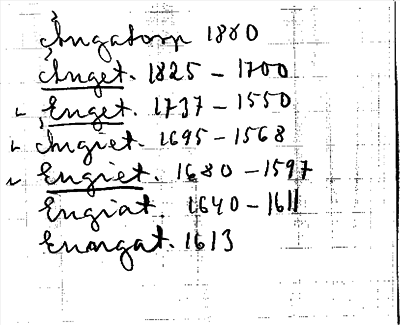 Ängatorp 1880
Änget. 1825 - 1700
Enget. 1737 - 1550
Ängiet. 1695 - 1568
Engiet. 1680 - 1597
Engiat. 1640 - 1611
Enongat. 1613